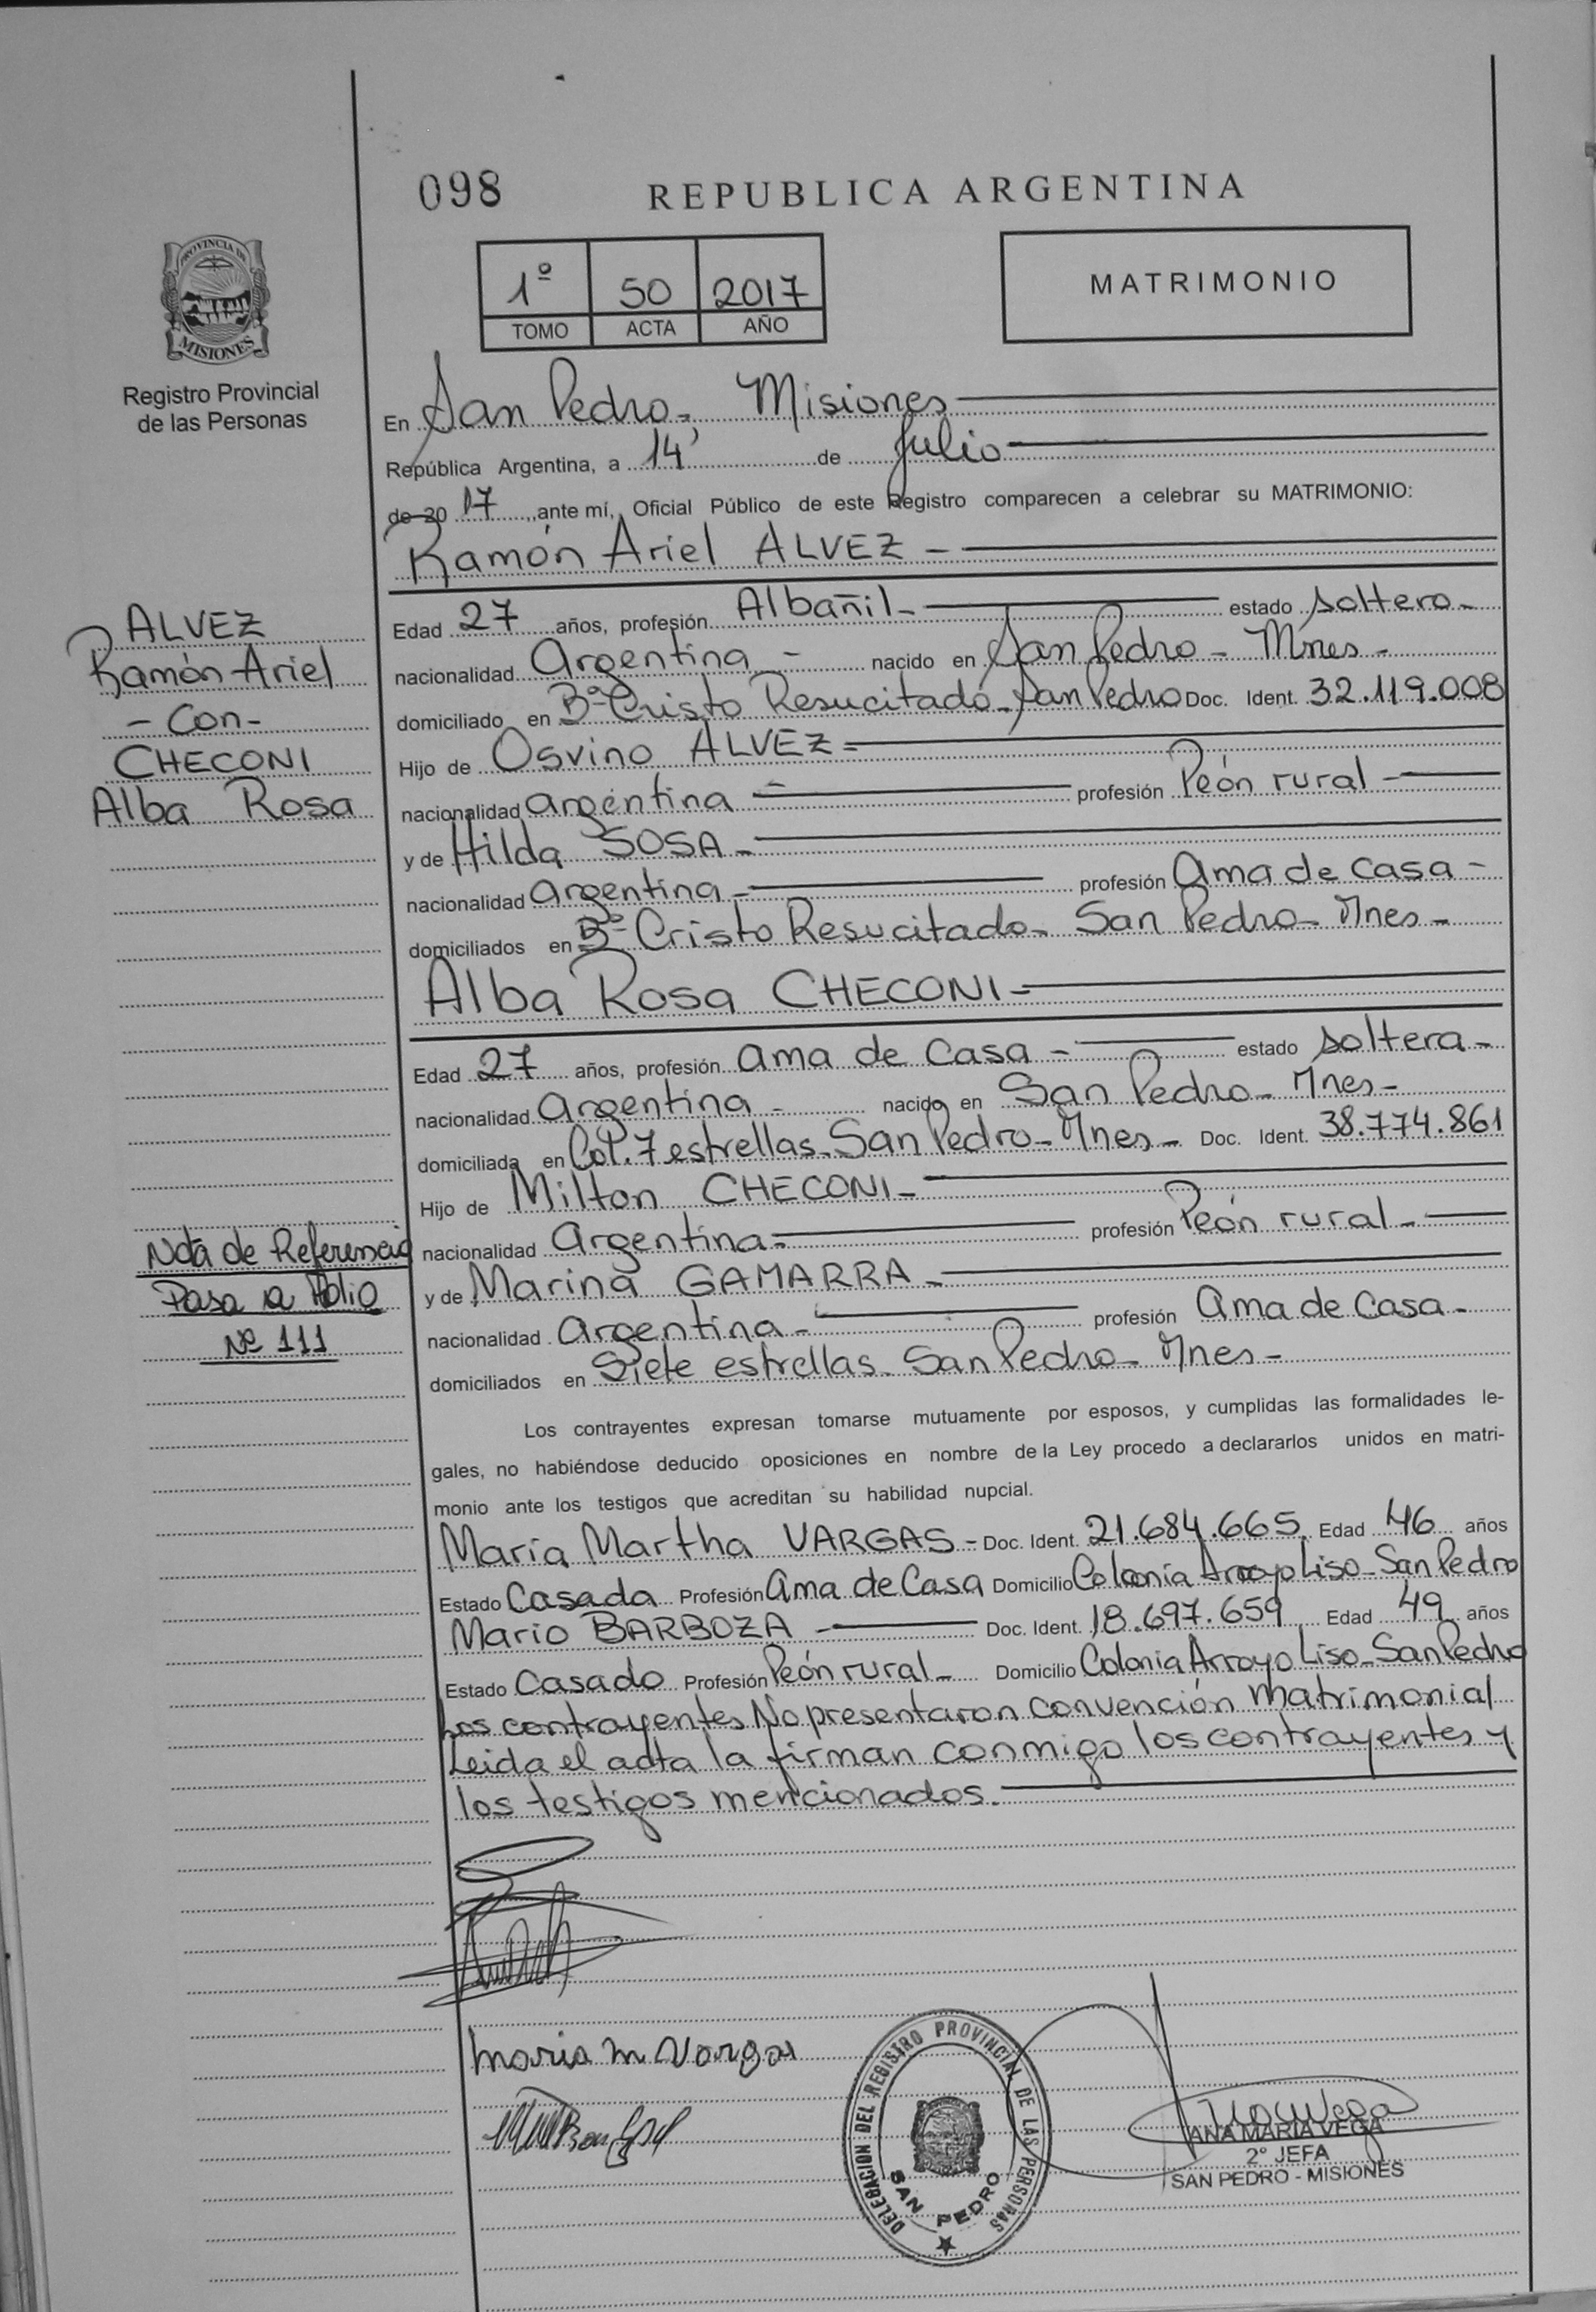 098
REPUBLICA ARGENTINA
PROVINCIA DE
MISIONES
Registro Provincial
de las Personas
1º 50 2017
TOMO ACTA AÑO
MATRIMONIO
En San Pedro- Misiones
República Argentina, a 14 de Julio
de 20 17 ,ante mí, Oficial Público de este Registro comparecen a celebrar su MATRIMONIO:
Ramón Ariel ALVEZ -
ALVEZ
Ramón Ariel
- Con -
CHECONI
Alba Rosa
Edad 27 años, profesión Albañil- estado soltero-
nacionalidad Argentina - nacido en San Pedro - Mnes -
domiciliado en Bº Cristo Resucitado- San Pedro Doc. Ident. 32.119.008
Hijo de Osvino ALVEZ=
nacionalidad argentina - profesión Peón rural -
y de Hilda SOSA -
nacionalidad argentina - profesión Ama de Casa -
domiciliados en Bº Cristo Resucitado- San Pedro- Mnes -
Alba Rosa CHECONI -
Edad 27 años, profesión ama de Casa - estado soltera -
nacionalidad argentina - nacido en San Pedro- Mnes-
domiciliada en Col. 7 estrellas- San Pedro- Mnes - Doc. Ident. 38.774.861
Hijo de Milton CHECONI -
nacionalidad argentina- profesión Peón rural -
y de Marina GAMARRA -
nacionalidad argentina - profesión ama de Casa -
domiciliados en Siete estrellas- San Pedro- Mnes -
Nota de Referencia
Pasa a Folio
Nº 111
Los contrayentes expresan tomarse mutuamente por esposos, y cumplidas las formalidades le-
gales, no habiéndose deducido oposiciones en nombre de la Ley procedo a declararlos unidos en matri-
monio ante los testigos que acreditan su habilidad nupcial.
María Martha VARGAS - Doc. Ident. 21.684.665 Edad 46 años
Estado Casada Profesión ama de Casa Domicilio Colonia Arroyo Liso- San Pedro
Mario BARBOZA - Doc. Ident. 18.697.659 Edad 49 años
Estado Casado Profesión Peón rural - Domicilio Colonia Arroyo Liso- San Pedro
Los contrayentes No presentaron convención matrimonial
Leida el acta la firman conmigo los contrayentes y
los testigos mencionados.
maria m Vargas
DELEGACION DEL REGISTRO PROVINCIAL DE LAS PERSONAS
SAN PEDRO
ANA MARIA VEGA
2º JEFA
SAN PEDRO - MISIONES